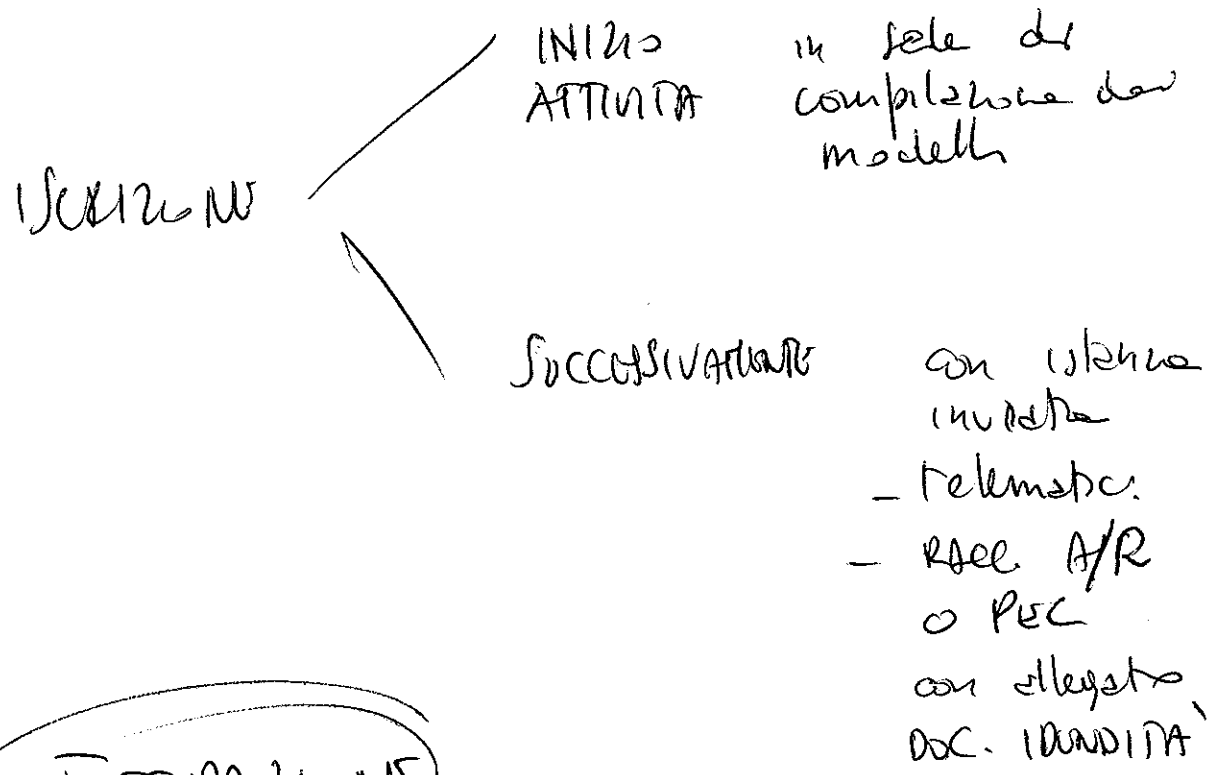 ISCRIZIONE
INIZIO
ATTIVITA
in sede di
compilazione dei
modelli
SUCCESSIVAMENTE
con istanza
inviata
- telematic.
- RACC A/R
o PEC
con allegato
DOC. IDENDITÀ